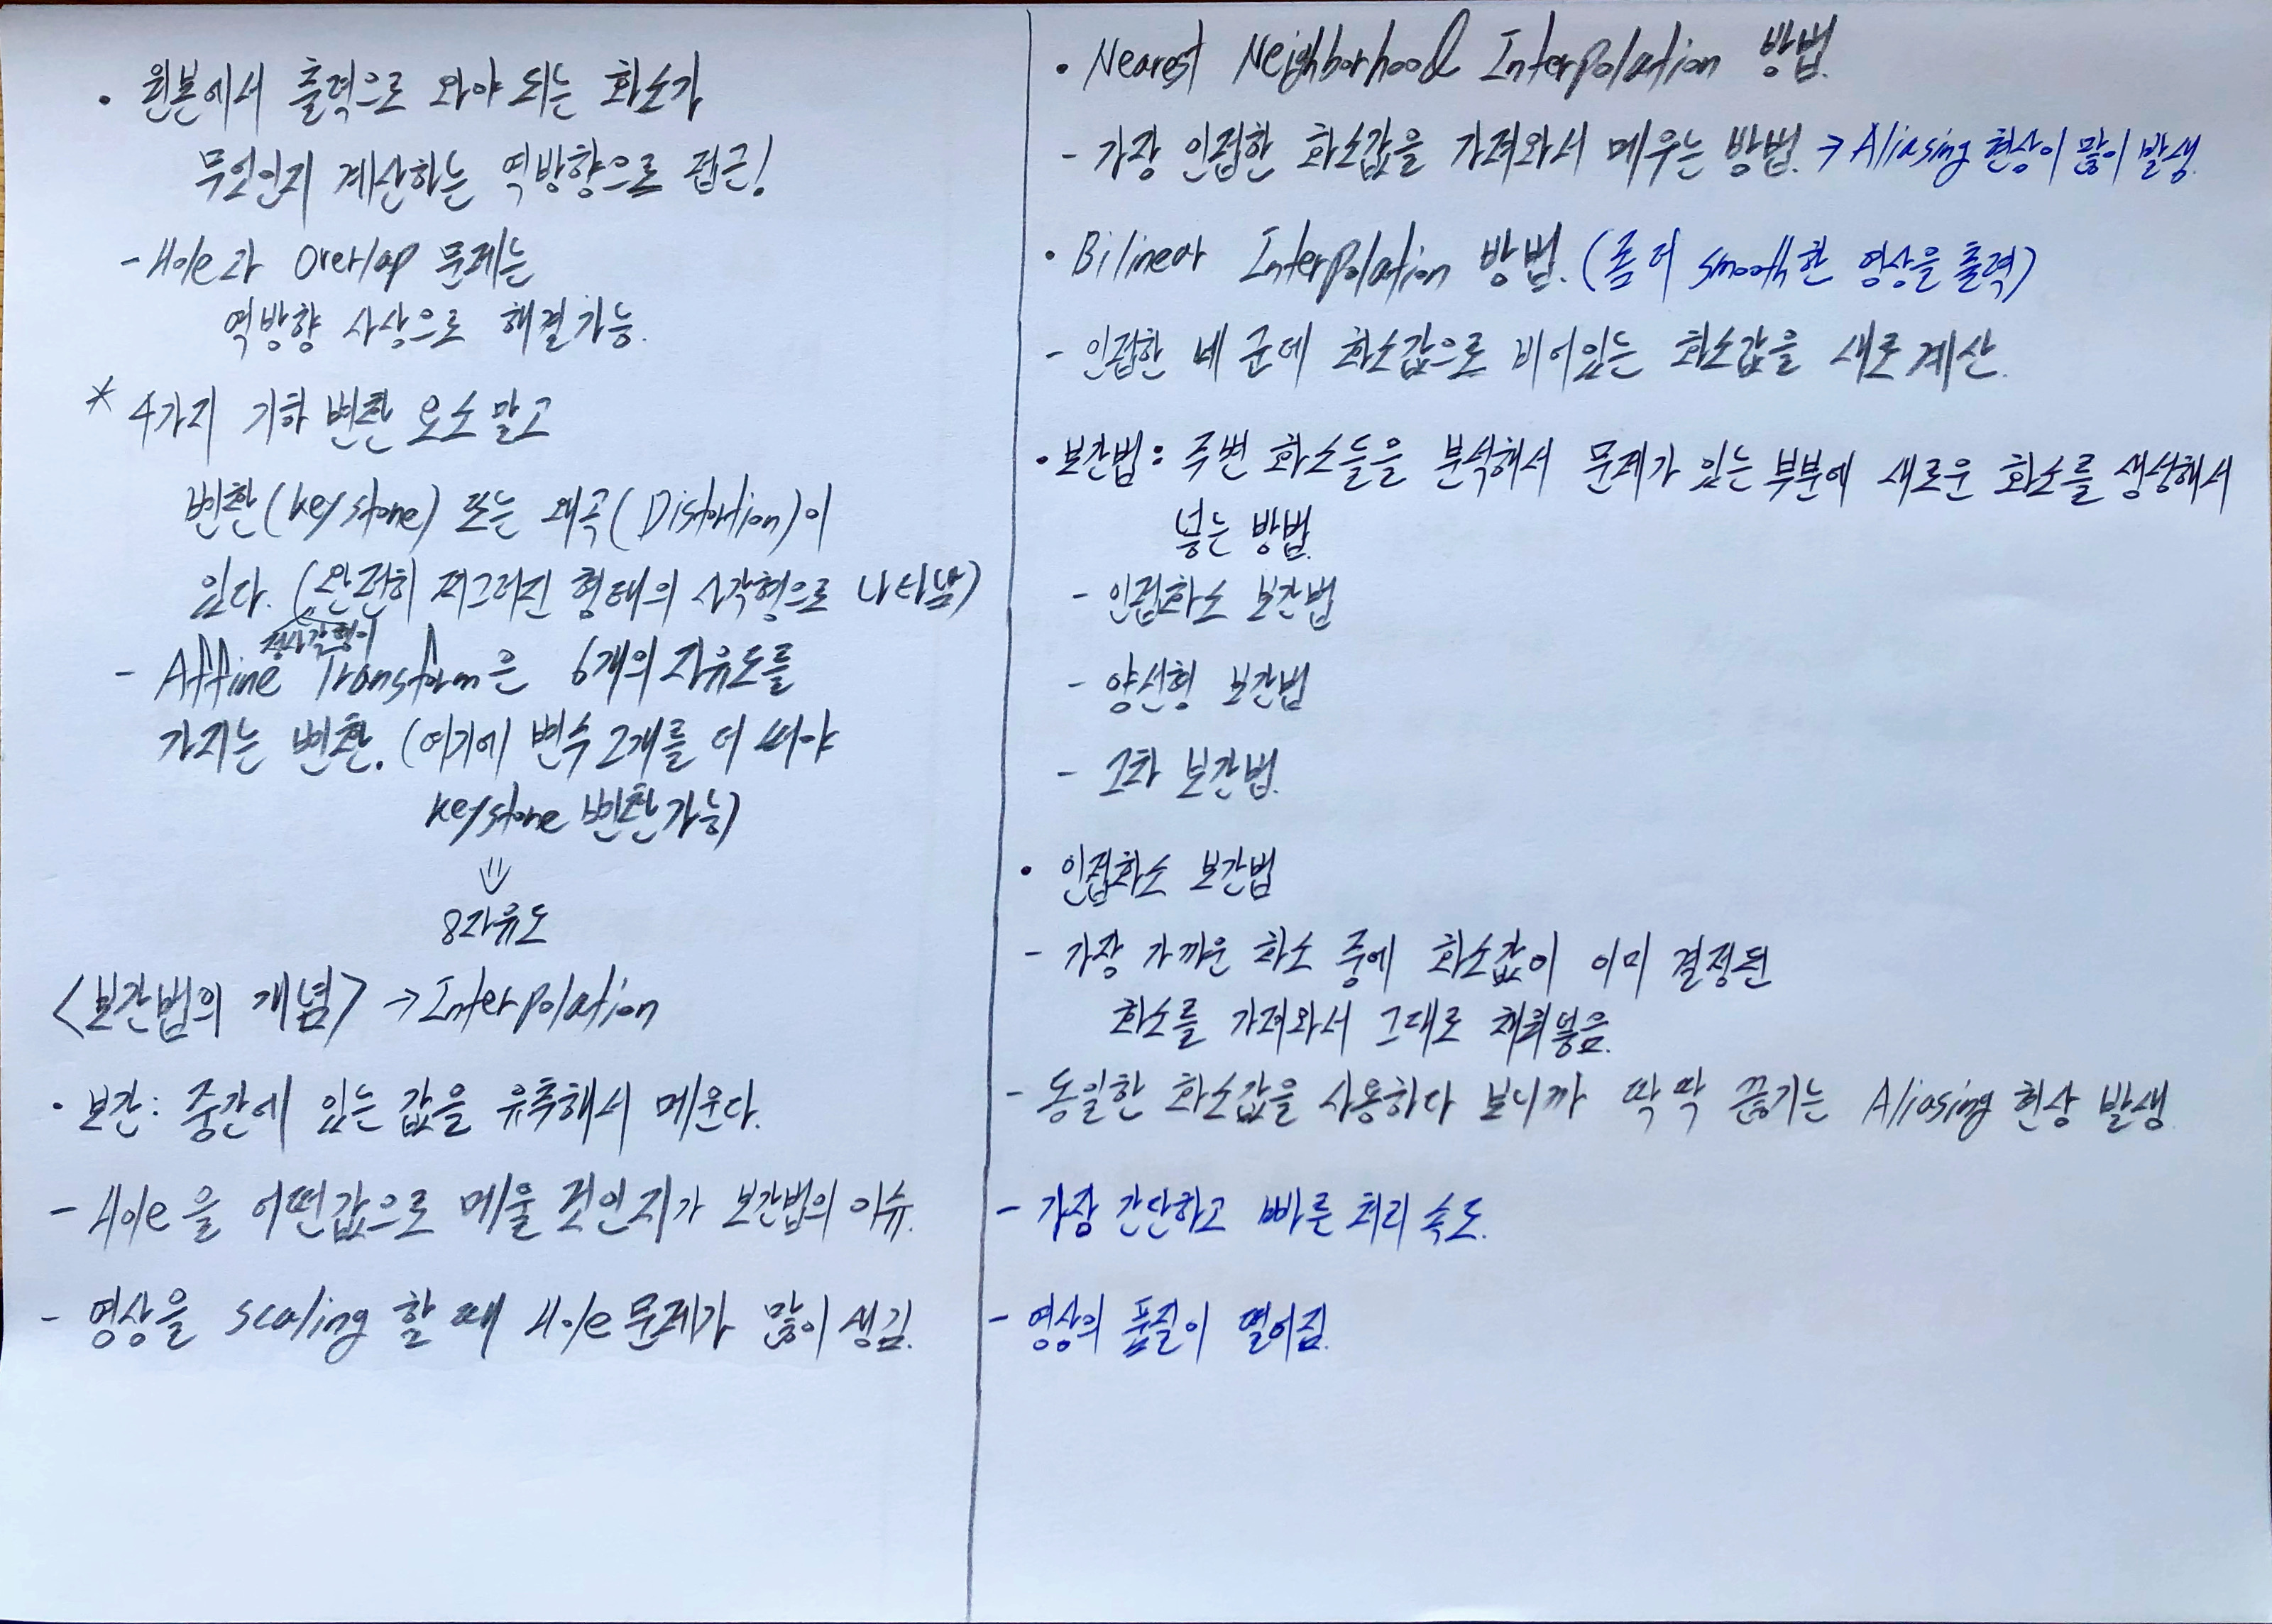 • 원본에서 출력으로 와야 되는 화소가
무엇인지 계산하는 역방향으로 접근!
- Hole과 Overlap 문제는
역방향 사상으로 해결가능.
* 4가지 기하 변환 요소 말고
변환(keystone) 또는 왜곡(Distortion)이
있다. (완전히 찌그러진 형태의 사각형으로 나타남)
정사각형이
- Affine Transform은 6개의 자유도를
가지는 변환. (여기에 변수 2개를 더 써야
keystone 변환가능)
⇓
8자유도
<보간법의 개념> → Interpolation
• 보간: 중간에 있는 값을 유추해서 메운다.
- Hole을 어떤값으로 메울 것인지가 보간법의 이슈.
- 영상을 scaling 할 때 Hole 문제가 많이 생김.
• Nearest Neighborhood Interpolation 방법.
- 가장 인접한 화소값을 가져와서 메우는 방법. → Aliasing 현상이 많이 발생.
• Bilinear Interpolation 방법. (좀 더 smooth한 영상을 출력)
- 인접한 네 군데 화소값으로 비어있는 화소값을 새로 계산.
• 보간법: 주변 화소들을 분석해서 문제가 있는 부분에 새로운 화소를 생성해서
넣는 방법.
- 인접화소 보간법
- 양선형 보간법
- 고차 보간법.
• 인접화소 보간법
- 가장 가까운 화소 중에 화소값이 이미 결정된
화소를 가져와서 그대로 채워넣음.
- 동일한 화소값을 사용하다 보니까 딱딱 끊기는 Aliasing 현상 발생.
- 가장 간단하고 빠른 처리 속도.
- 영상의 품질이 떨어짐.